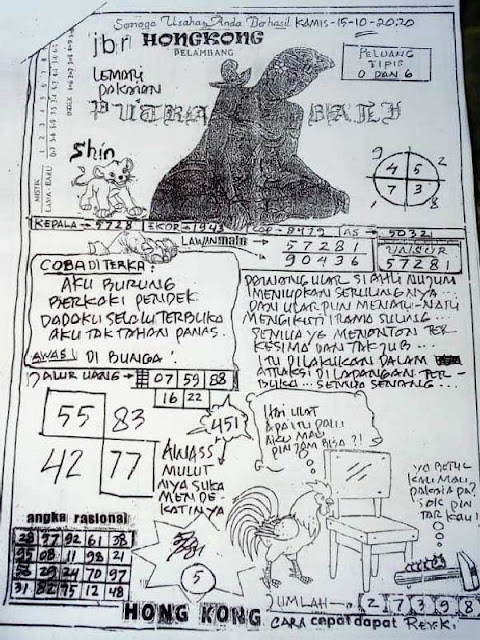 Semoga Usaha Anda Berhasil KAMIS-15-10-2020
jbr HONGKONG
PELAMBANG
PELUANG
TIPIS
0 DAN 6
LEMARI
PAKAIAN
PUTRA
Shin
MISTIK
LAMA - BARU
INDEX
9 2
4 5
7 3
7 8
KEPALA → 5728 EKOR → 1943 COP → 8479 AS → 50321
LAWAN main → 57281
90436
UNSUR
57281
COBA DI TERKA:
AKU BURUNG
BERKAKI PENDEK
DADAKU SELALU TERBUKA
AKU TAK TAHAN PANAS.
AWAS! DI BUNGA!
PAWANG ULAR SI AHLI NUJUM
MENIUPKAN SERULINGNYA
DAN ULAR PUN MENARI-NARI
MENGIKUTI IRAMA SULING...
SEMUA YG MENONTON TER
KESIMA DAN TAKJUB...
ITU DILAKUKAN DALAM
ATRAKSI DILAPANGAN TER-
BUKA... SEMUA SENANG...
JALUR UANG → 07 59 88
16 22
451
55 83
42 77
AWASS
MULUT
NYA SUKA
MENDE
KATINYA
HAI ULAT
APA ITU PALU
AKU MAU
PINJAM BISA?!
YA BETUL
KAU MAU
PAKAI APA?
SOK PIN
TAR KAU!
angka rasional
28 37 92 61 38
95 08 11 98 21
53 29 24 70 97
31 82 75 12 48
5
JUMLAH → 2 7 3 9 8
HONG KONG CARA cepat dapat Rejeki